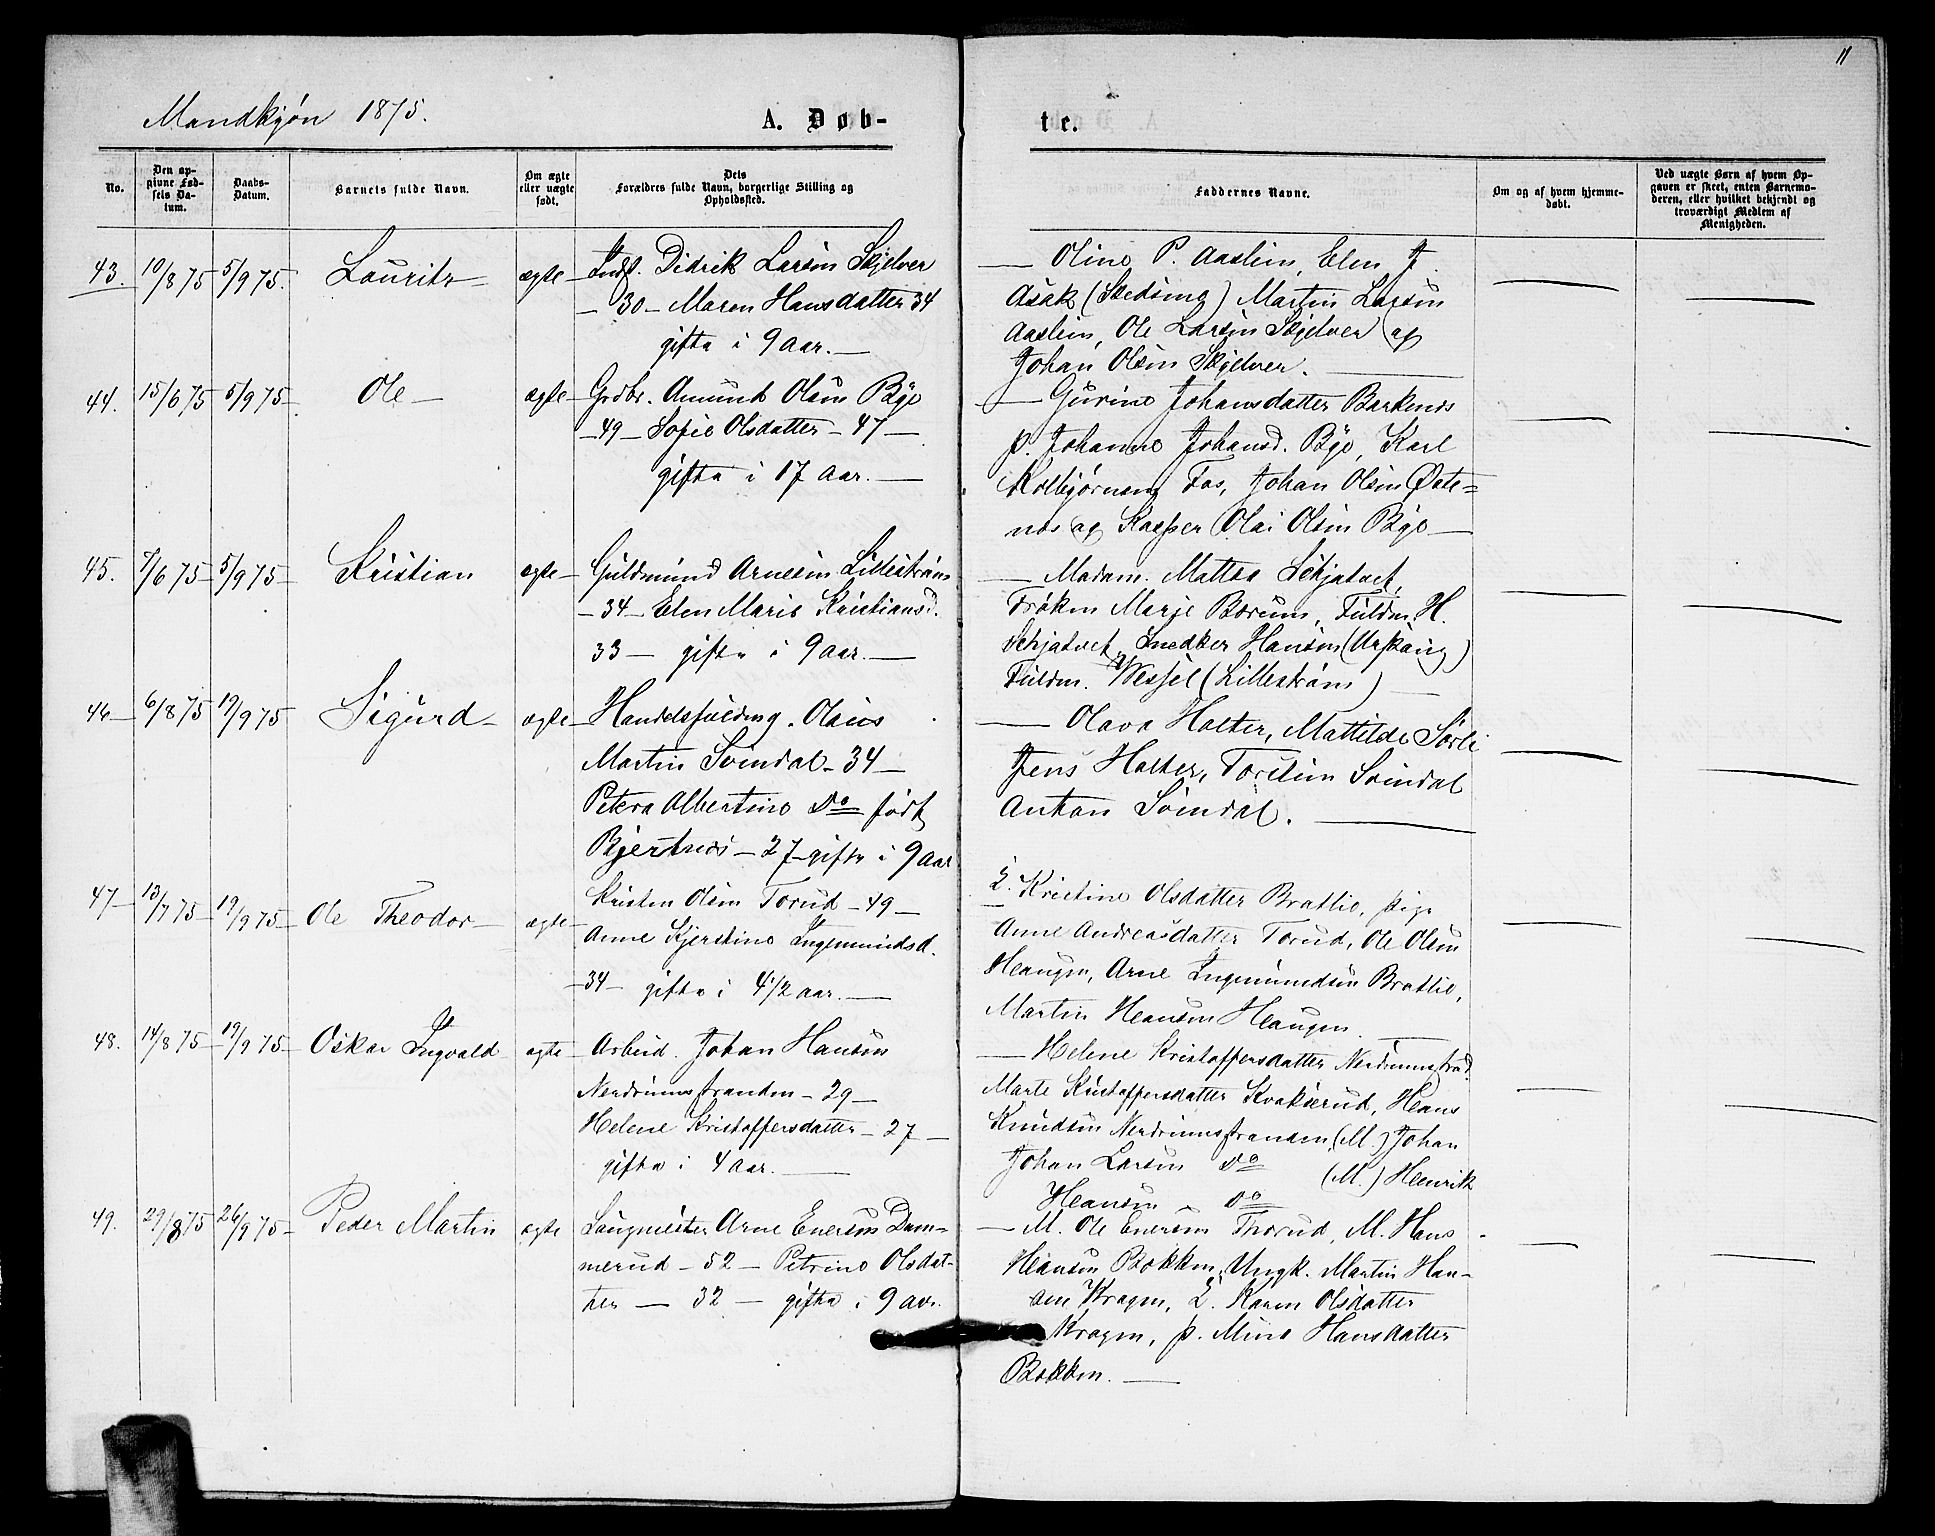 11
Mandkjøn 1875.
A. Døb-
te.
No.
Den op-
givne Fød-
sels Da-
tum.
Daabs-
Datum.
Barnets fulde Navn.
Om ægte
eller uægte
født.
Dets
Forældres fulde Navn, borgerlige Stilling og
Opholdssted.
Faddernes Navne.
Om og af hvem hjemme-
døbt.
Ved uægte Børn af hvem Op-
gaven er skeet, enten Barnemo-
deren, eller hvilket bekjendt og
troværdigt Medlem af
Menigheden.
43. 10/8 75 5/9 75. Lauritz — ægte — Indst. Didrik Larsen Skjelver
— 30 — Maren Hansdatter 34
gifte i 9 Aar. —
— Oline P. Aaslien, Elen J.
Asak (Skedsmo) Martin Larsen
Aaslien, Ole Larsen Skjelver og
Johan Olsen Skjelver. —
44. 15/6 75 5/9 75 — Ole — ægte — Grdbr. Amund Olsen Bye
— 49 — Sofie Olsdatter — 47 —
gifte i 17 Aar. —
— Gurine Johansdatter Barkenes
p. Johanne Johansd. Bye, Karl
Kolbjørnsen Fos, Johan Olsen Øste-
nes og Kasper Olai Olsen Bye —
45. 7/6 75 — 5/9 75 — Kristian ægte — Guldmund Arnesen Lillestrøm
— 34 — Elen Marie Kristiansd.
33 — gifte i 9 Aar. —
— Madam. Mattea Schjatvet,
Frøken Marje Bærum, Fuldm. H.
Schjatvet, Snedker Hansen (Urskoug)
Fuldm. Wessel (Lillestrøm) —
46 — 6/8 75 19/9 75 Sigurd — ægte — Handelsfuldmg. Olaus
Martin Svindal — 34 —
Petera Albertine Do født
Bjertnæs — 27 — gifte i 9 Aar
— Olava Halter, Mathilde Sørli
Jens Halter, Torstein Svindal
Anton Svindal. —
47 — 13/7 75 — 19/9 75 — Ole Theodor — ægte — Kristen Olsen Torud — 49 —
Anne Kjerstine Ingemundsd.
— 34 — gifte i 4 1/2 aar. —
E. Kristine Olsdatter Bratlie, pige
Anne Andreasdatter Torud, Ole Olsen
Haugen, Arne Ingemundsen Bratlie,
Martin Hansen Haugen. —
48. 14/8 75 — 19/9 75 — Oskar Ingvald — ægte — Arbeid. Johan Hansen
Nerdrumsstranden — 29 —
Helene Kristoffersdatter — 27 —
gifte i 4 Aar. —
— Helene Kristoffersdatter Nerdrumsstrad.
Marte Kristoffersdatter Kvakerud, Hans
Knudsen Nerdrumsstranden, (M.) Johan
Johan Larsen Do (M.) Henrik
Hansen Do
49. 29/8 75 26/9 75 — Peder Martin ægte Saugmester Arne Enersen Dam-
merud — 52 — Petrine Olsdat-
ter — 32 — gifte i 9 aar.
— M. Ole Enersen Thorud, M. Hans
Hansen Bokken, Ungk. Martin Han-
sen Kragen, E. Karen Olsdatter
Kragen, p. Mina Hansdatter
Bokken. —